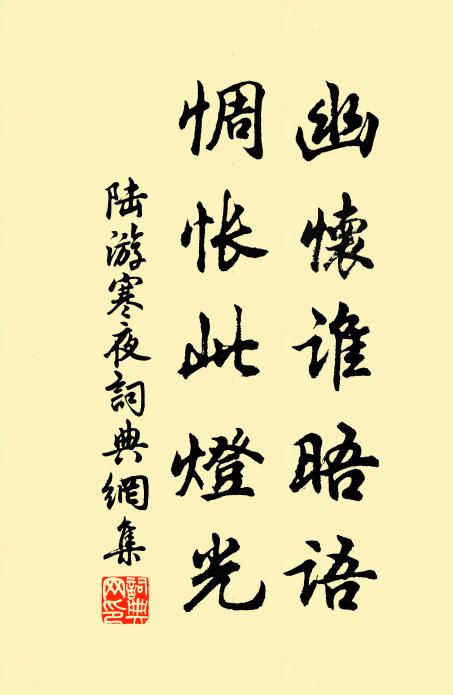 幽懷谁晤语
惆怅此燈光
陆游寒夜詞典網集
詞典網印